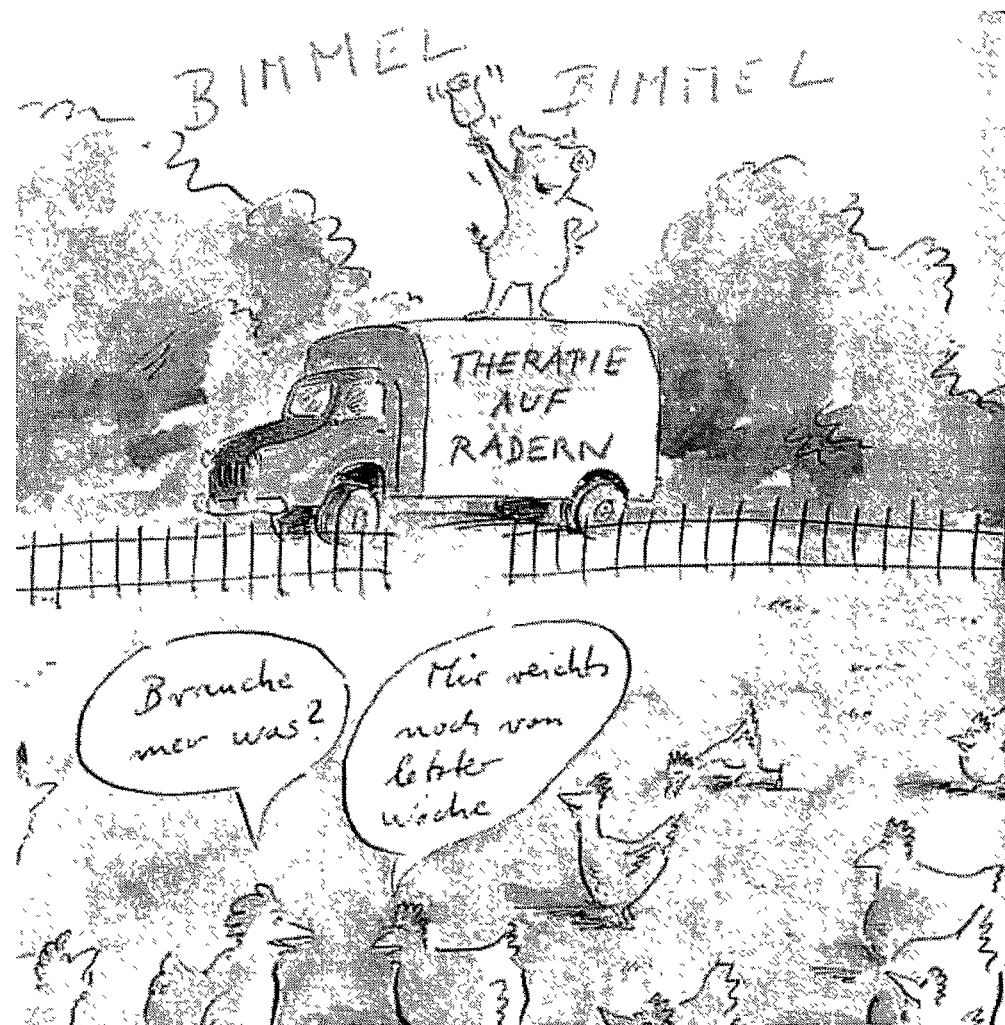 BIMMEL BIMMEL
THERAPIE
AUF
RÄDERN
Brauche
mer was?
Mir reichts
noch von
letzter
woche